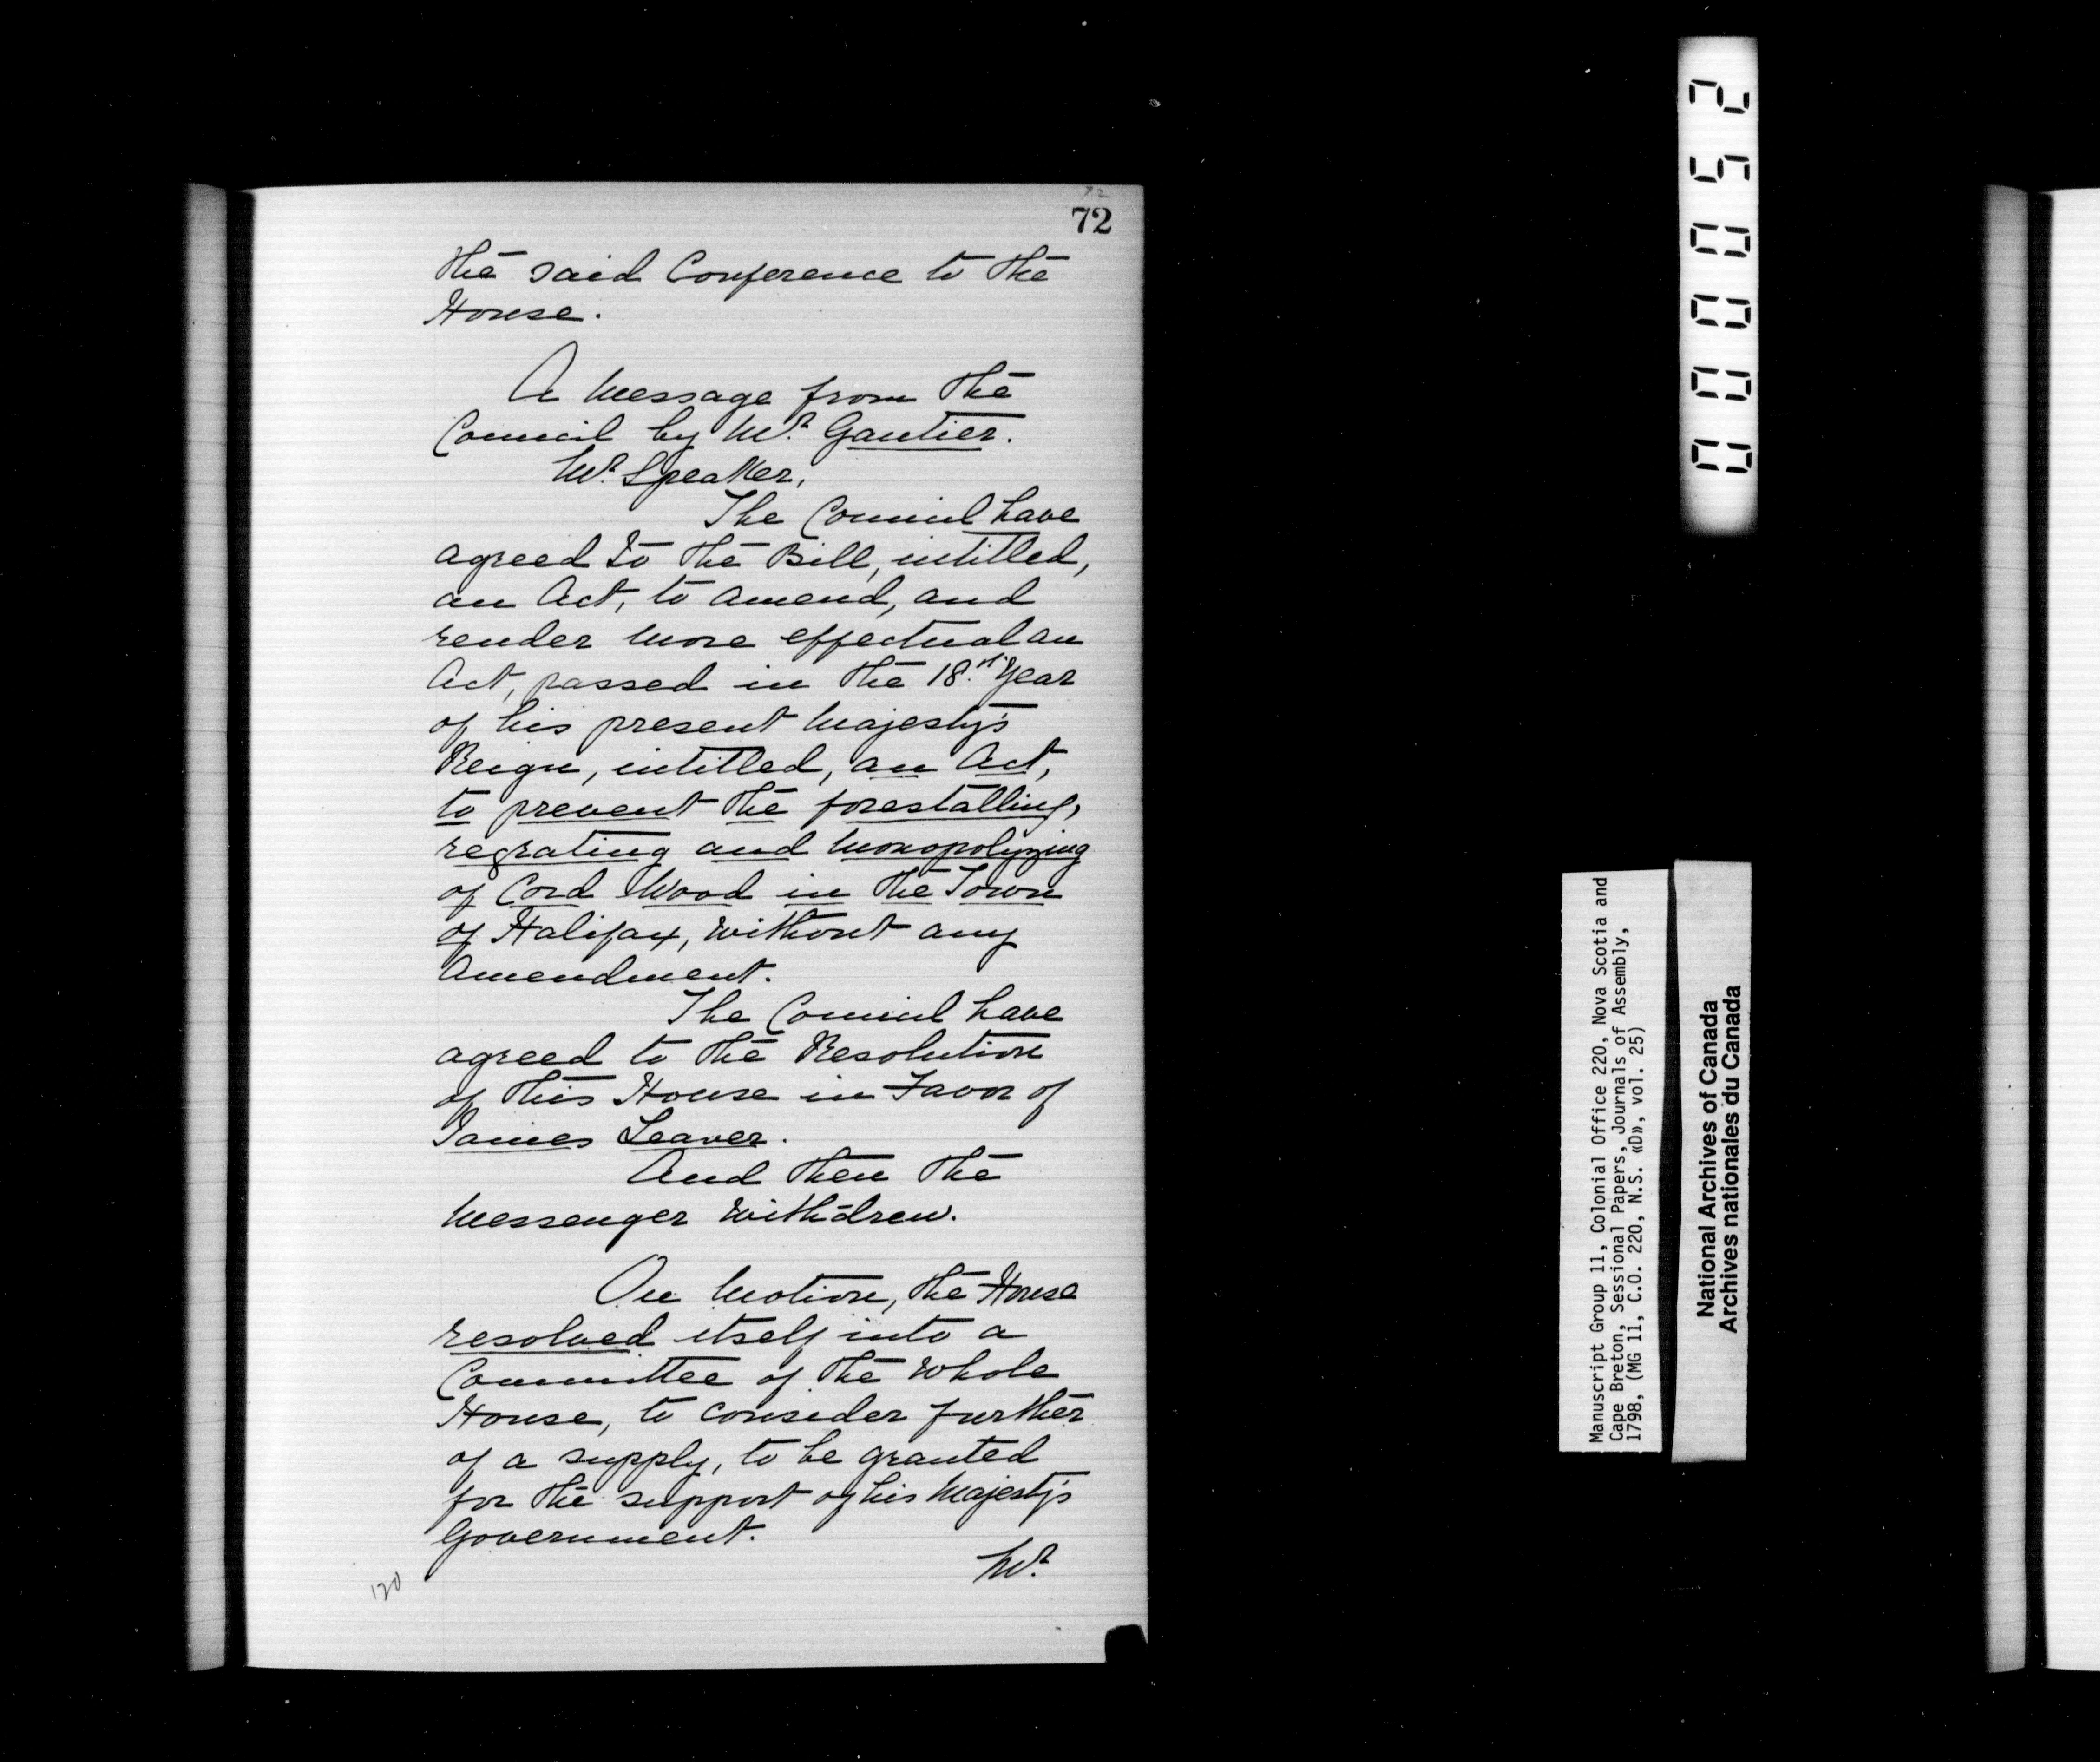 72
72
the said Conference to the
House.
A Message from the
Council by Mr. Gautier.
Mr. Speaker,
The Council have
agreed to the Bill, intitled,
an Act, to amend, and
render more effectual an
Act, passed in the 18.th Year
of his present Majesty's
Reign, intitled, an Act,
to prevent the forestalling,
regrating and Monopolyzing
of Cord Wood in the Town
of Halifax, without any
Amendment.
The Council have
agreed to the Resolution
of this House in Favor of
James Leaver.
And then the
Messenger withdrew.
On Motion, the House
resolved itself into a
Committee of the whole
House, to consider further
of a supply, to be granted
for the support of his Majesty's
Government.
Mr.
120
000052
Manuscript Group 11, Colonial Office 220, Nova Scotia and
Cape Breton, Sessional Papers, Journals of Assembly,
1798, (MG 11, C.O. 220, N.S. «D», vol. 25)
National Archives of Canada
Archives nationales du Canada